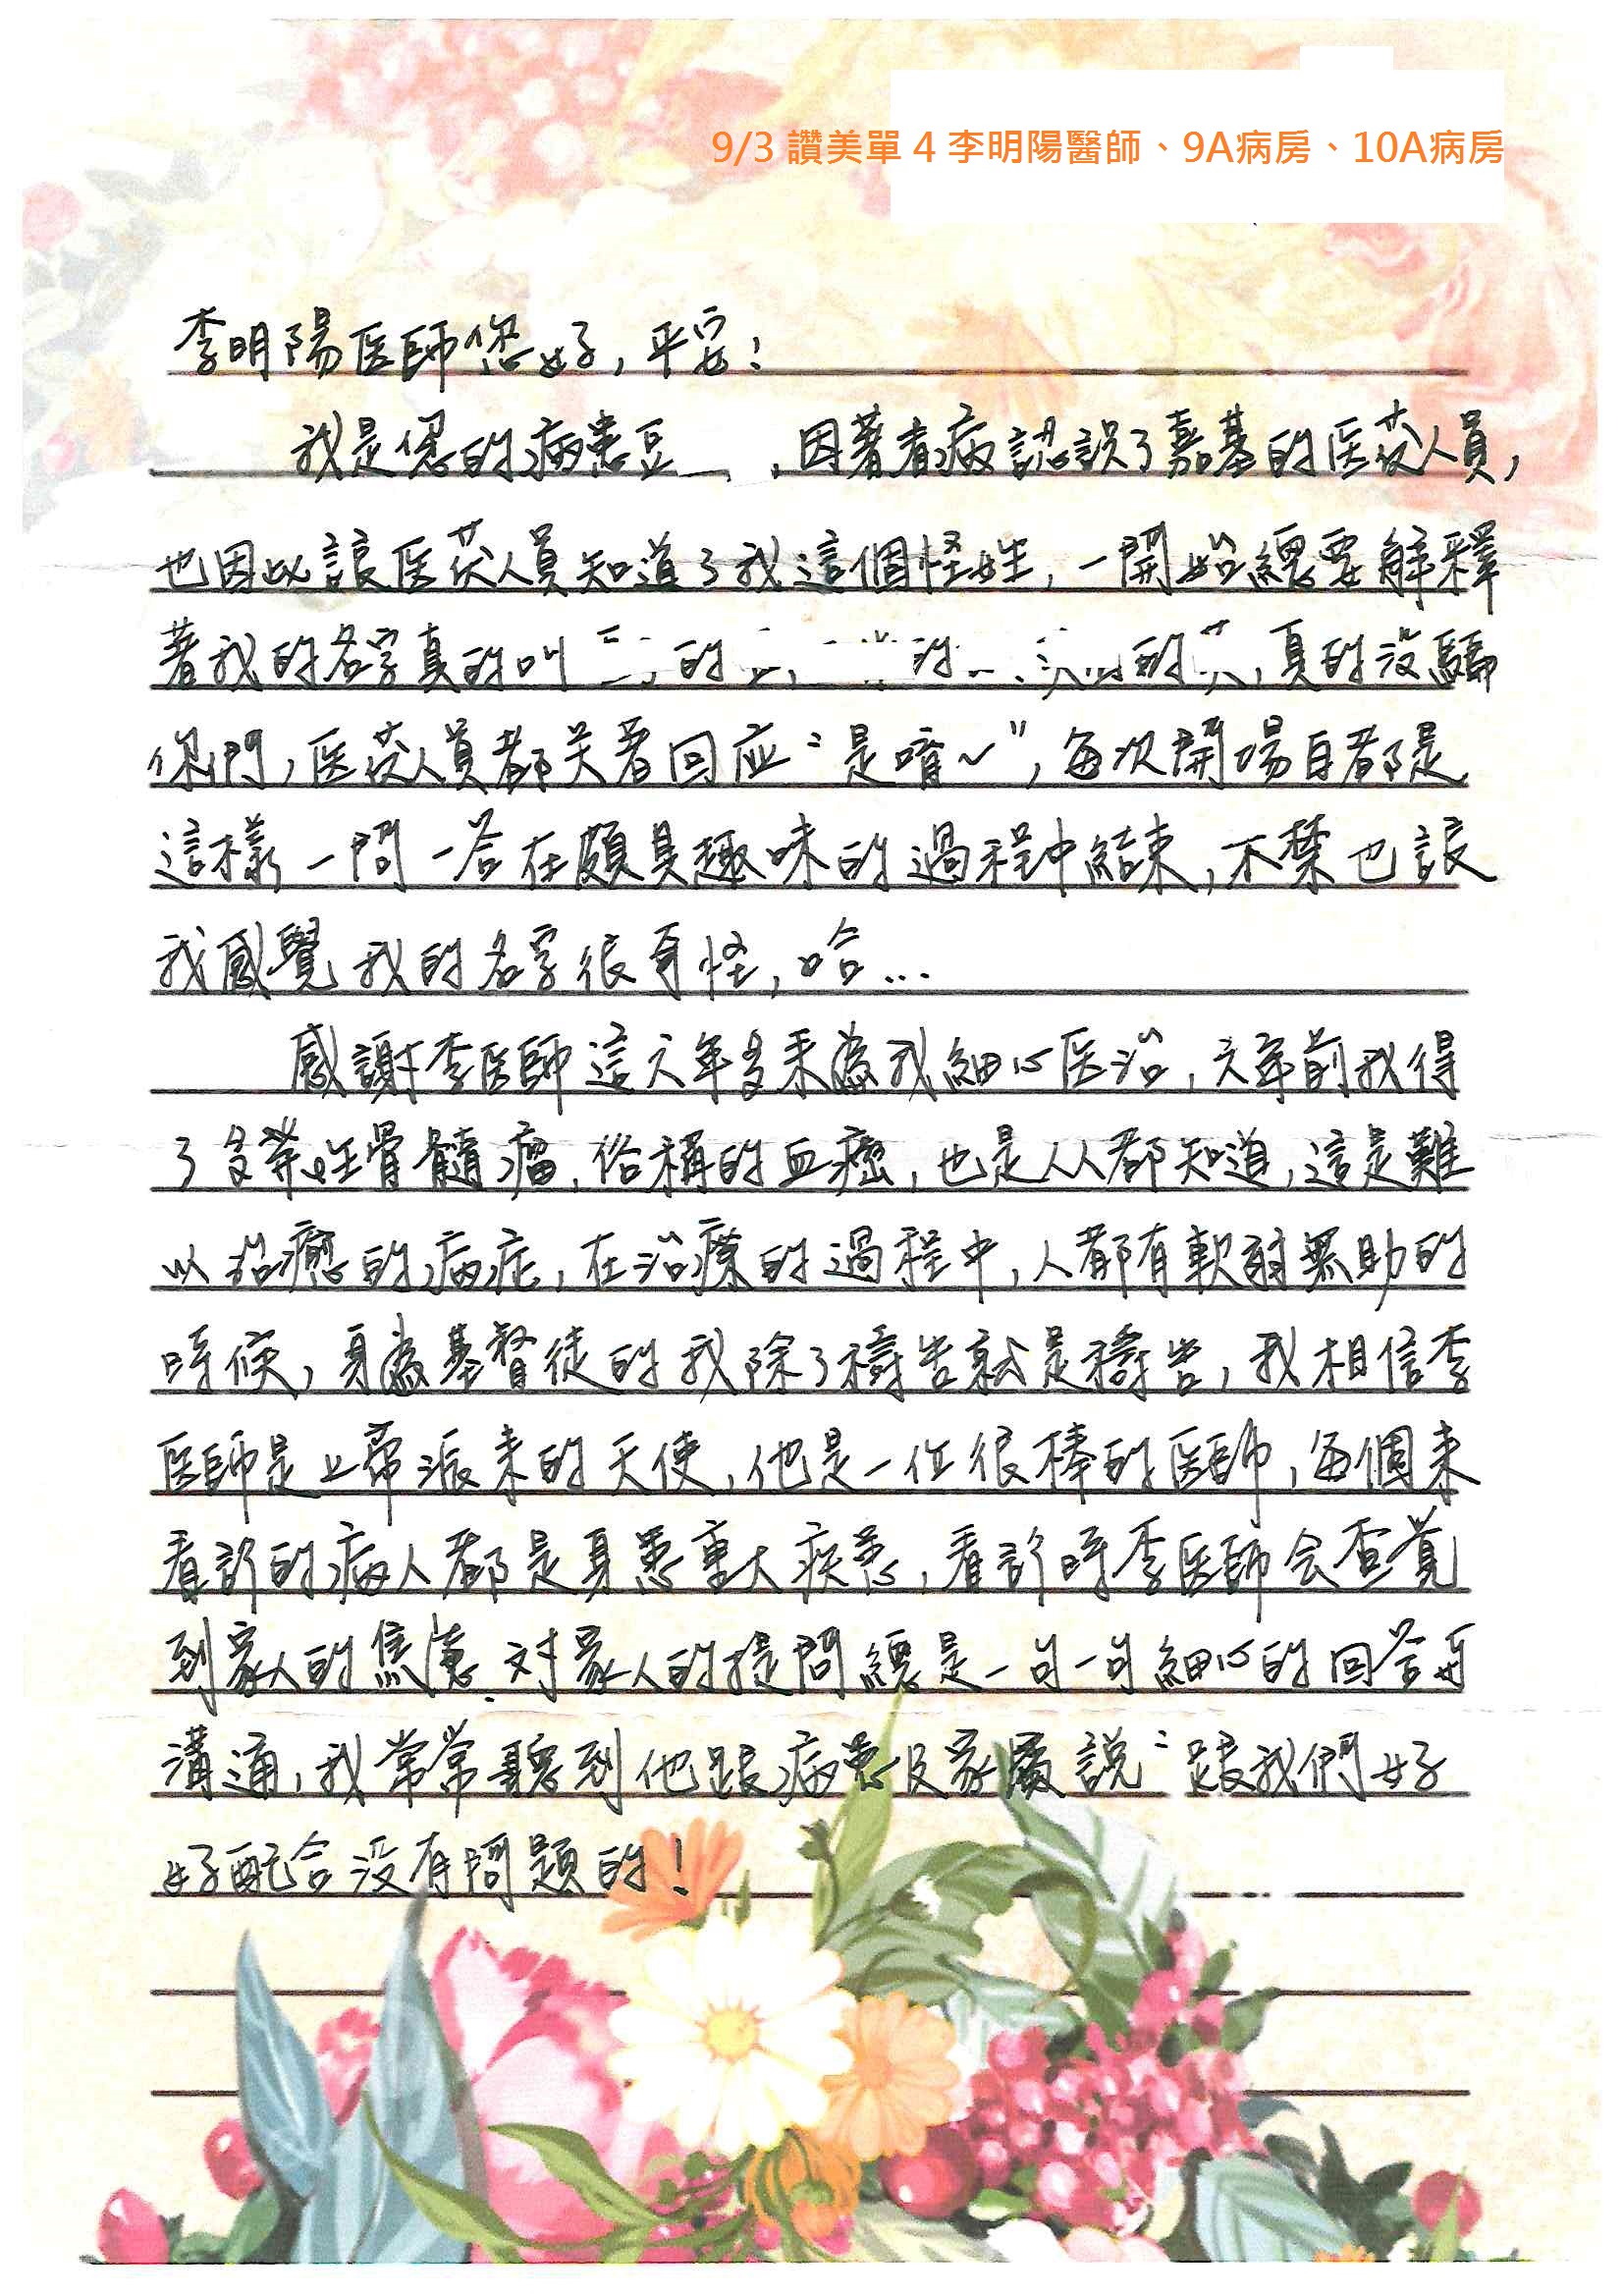 9/3 讚美單 4 李明陽醫師、9A病房、10A病房
李明陽医師您好，平安！
我是您的病患豆 ，因著看病認識了嘉基的医护人員，
也因此讓医护人員知道了我這個怪姓，一開始總要解釋
著我的名字真的叫 的 的 的 ，真的沒騙
你們，医护人員都笑著回应“是唷~”，每次開場白都是
這樣一問一答在頗具趣味的過程中結束，不禁也讓
我感覺我的名字很奇怪，哈...
感謝李医師這六年多來為我細心医治，六年前我得
了多發性骨髓瘤，俗稱的血癌，也是人人都知道，這是難
以治癒的病症，在治療的過程中，人都有軟弱無助的
時候，身為基督徒的我除了禱告就是禱告，我相信李
医師是上帝派來的天使，他是一位很棒的医師，每個來
看診的病人都是身患重大疾患，看診時李医師会查覺
到家人的焦慮，对家人的提問總是一句一句細心的回答與
溝通，我常常聽到他跟病患及家屬說“跟我們好
好配合沒有問題的！